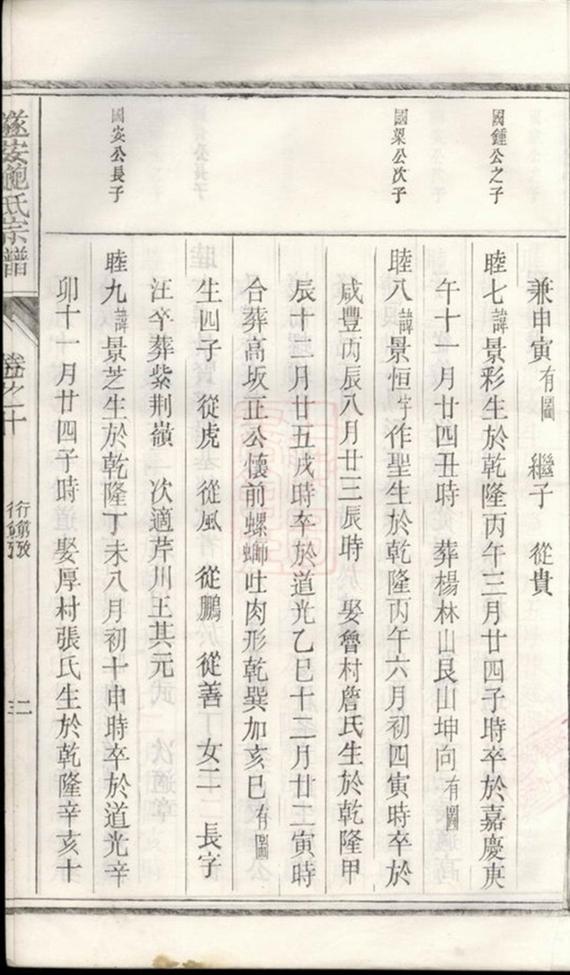 兼申寅有圖 繼子 從貴
國鍾公之子
睦七諱景彩生於乾隆丙午三月廿四子時卒於嘉慶庚
午十一月廿四丑時 葬楊林山艮山坤向有圖
國梁公次子
睦八諱景恒字作聖生於乾隆丙午六月初四寅時卒於
咸豐丙辰八月廿三辰時 娶魯村詹氏生於乾隆甲
辰十二月廿五戌時卒於道光乙巳十二月廿二寅時
合葬高坂正公懷前螺螄吐肉形乾巽加亥巳有圖
生四子 從虎 從風 從鵬 從善 女二 長字
汪卒葬紫荆嶺 次適芹川王其元
國安公長子
睦九諱景芝生於乾隆丁未八月初十申時卒於道光辛
卯十一月廿四子時 娶厚村張氏生於乾隆辛亥十
遂安鮑氏宗譜
卷之十
行第